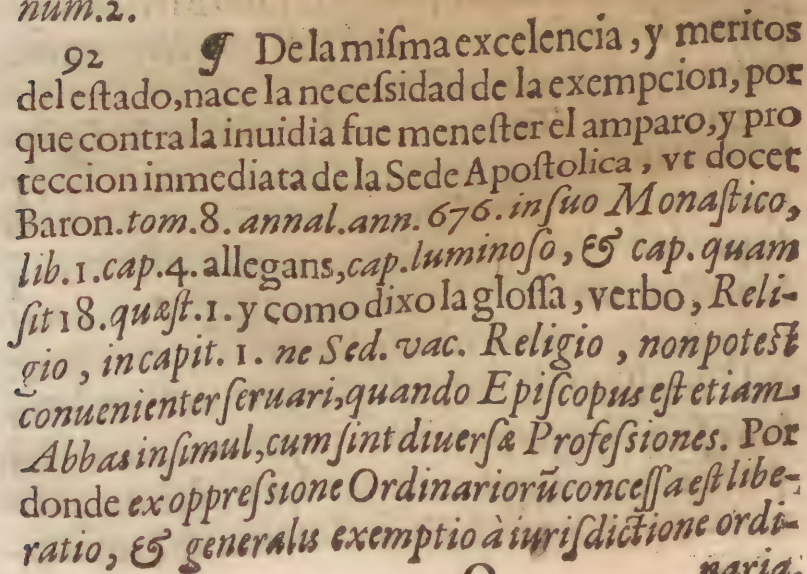 num.2.
92 ¶ De la misma excelencia, y meritos
del estado, nace la necessidad de la exempcion, por
que contra la inuidia fue menester el amparo, y pro
teccion inmediata de la Sede Apostolica, vt docet
Baron. tom. 8. annal. ann. 676. in suo Monastico,
lib. 1. cap. 4. allegans, cap. luminoso, & cap. quam
sit 18. quæst. 1. y como dixo la glossa, verbo, Reli-
gio, in capit. 1. ne Sed. vac. Religio, non potest
conuenienter seruari, quando Episcopus est etiam
Abbas insimul, cum sint diuersæ Professiones. Por
donde ex oppressione Ordinariorũ concessa est libe-
ratio, & generalis exemptio à iurisdictione ordi-
naria.